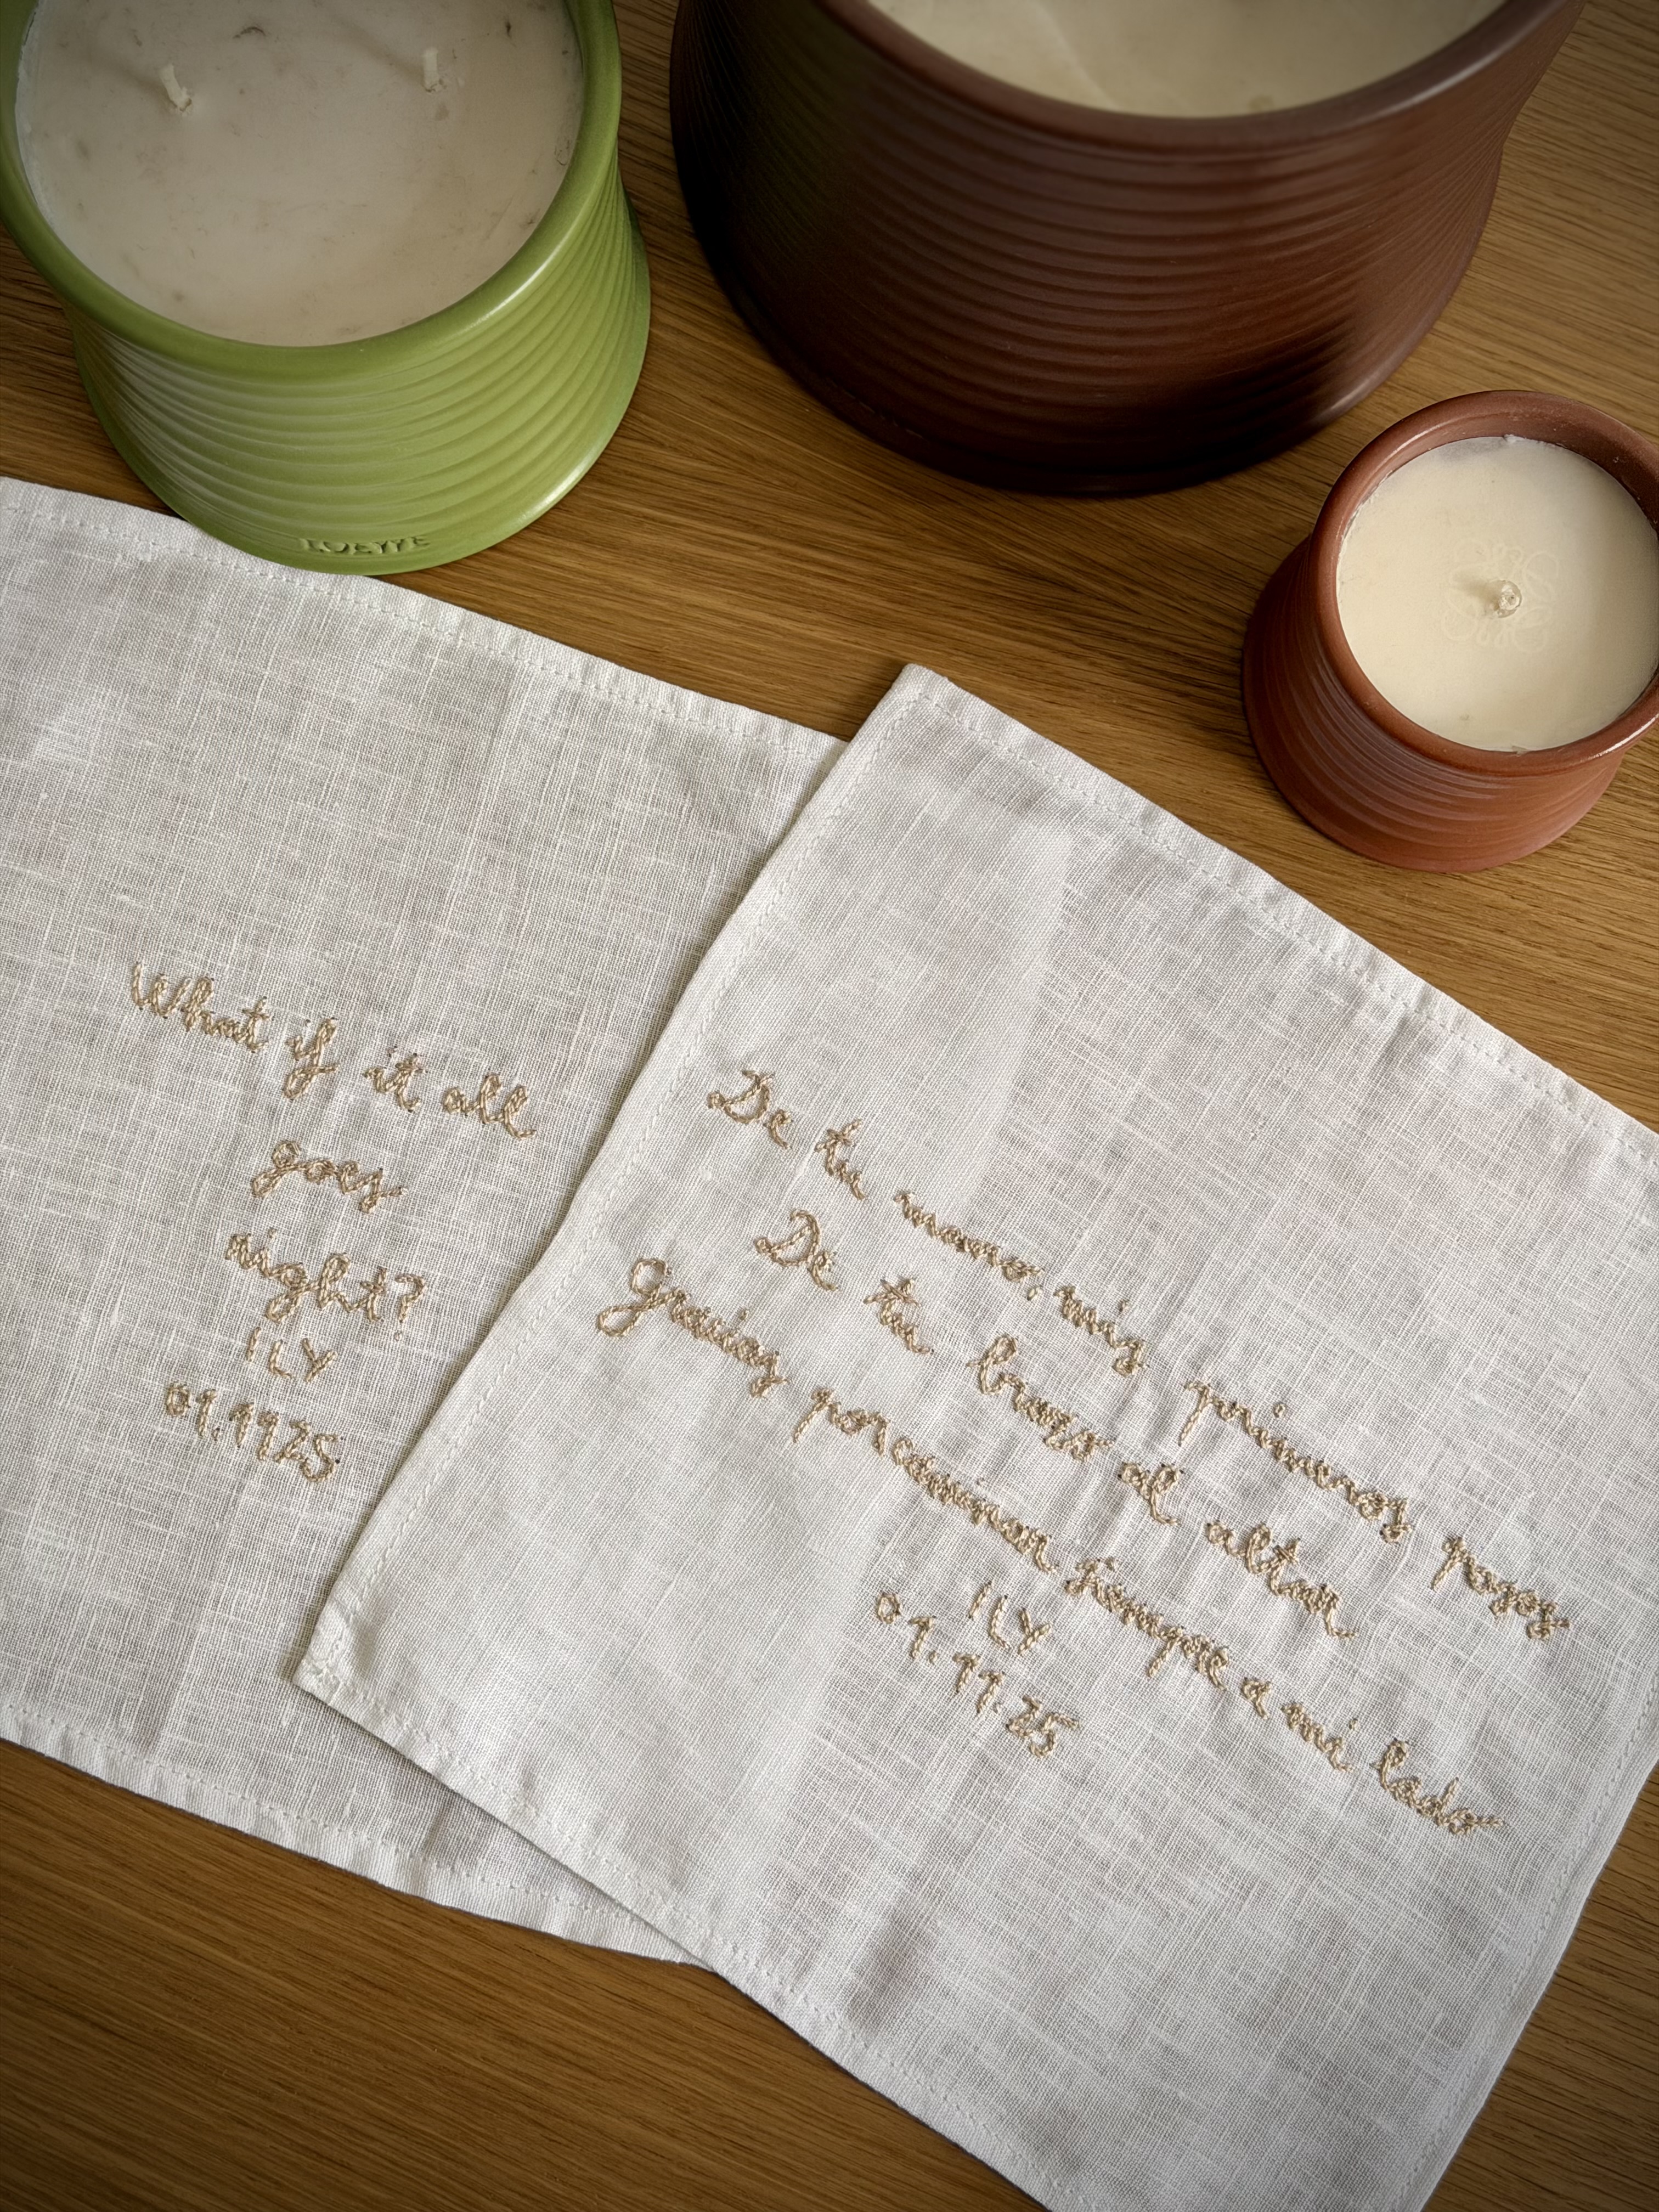 LOEWE
What if it all
goes
right?
ILY
01.1125
De tu mano, mis primeros pasos
De tu brazo al altar
Gracias por caminar siempre a mi lado
ILY
01.11.25